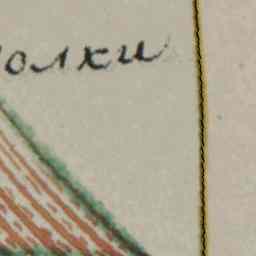 олки